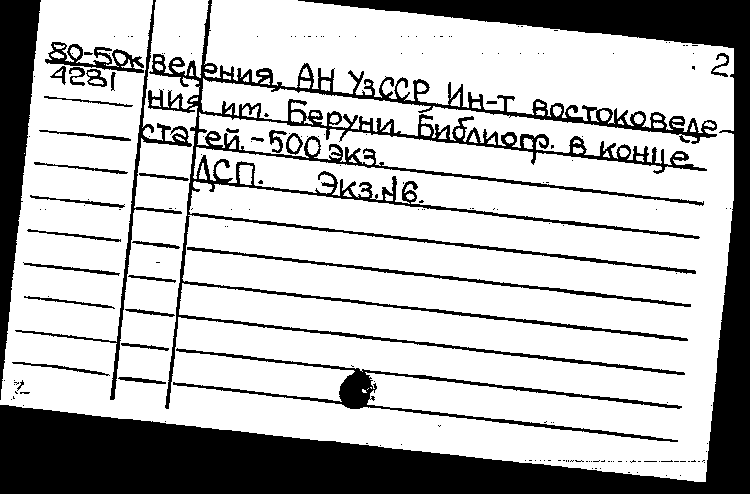 2.
80-50к ведения, АН УзССР Ин-т востоковеде-
4281 ния им. Беруни. Библиогр. в конце
статей. - 500 экз.
ДСП. Экз.№6.